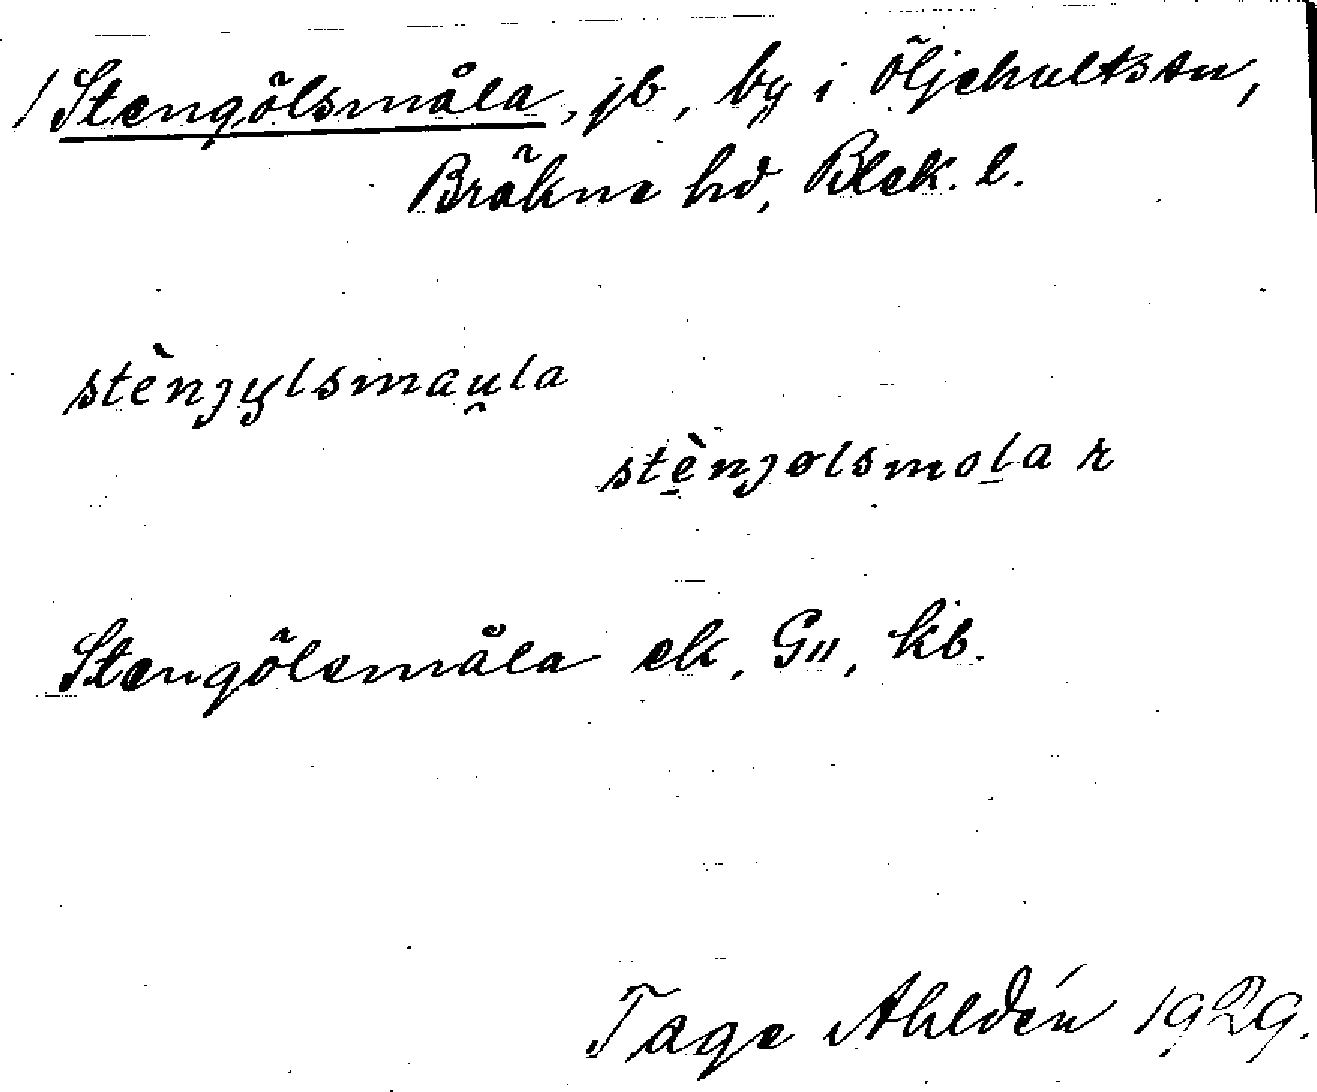 / Stengölsmåla, jb, by i Öljehults sn,
Bräkne hd, Blek. l.
stènjylsmau̯la
stènjolsmola r
Stengölsmåla ek, G11, kb.
Tage Ahldén 1929.